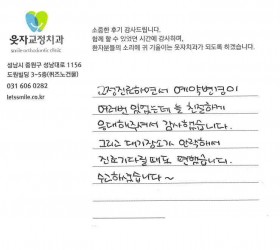 소중한 후기 감사드립니다.
함께 할 수 있었던 시간에 감사하며,
환자분들의 소리에 귀 기울이는 웃자치과가 되도록 하겠습니다.
웃자교정치과
smile orthodontic clinic
성남시 중원구 성남대로 1156
도원빌딩 3~5층(위즈노건물)
031 606 0282
letssmile.co.kr
교정진료하면서 예약변경이
여러번 있었는데 늘 친절하게
응대해주셔서 감사했습니다.
그리고 대기장소가 안락해서
진료기다릴때도 편했습니다.
수고하셨습니다~